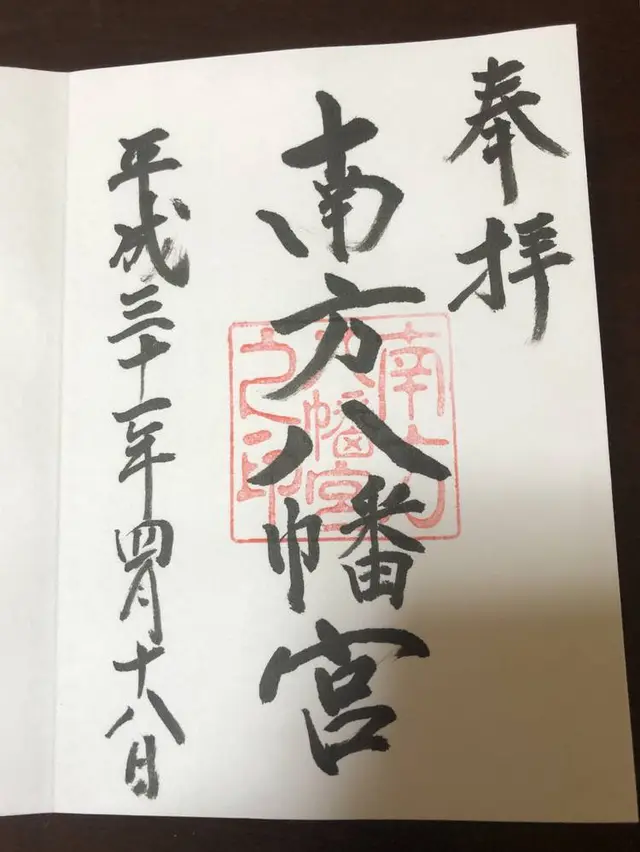 奉拝
南方八幡宮
南方
八幡宮
之印
平成三十一年四月十八日